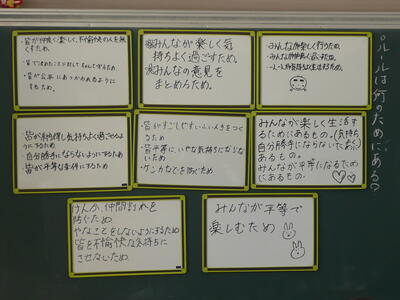 ◎ルールは何のためにある?
・皆が仲良く楽しく、不愉快の人を無
くすため。
・皆が公平にあつかわれるように
するため。
※みんなが楽しく気
持ちよく過ごすため。
※みんなの意見を
まとめるため。
・みんなが楽しく行うため。
皆が気持ちよく過ごせるよう
にするため
自分勝手にならないようにするため
皆が平等な条件にするため
・皆がすごしやすいいかんきょうをつく
るため
・皆平等に、いやな気持ちにならな
いため
・ケンカなどを防ぐため
みんなが楽しく生活す
るためにあるもの。(気持ち
自分勝手にならないためにも
あるもの。
みんなが平等になるため
にあるもの。
けんか、仲間割れを
防ぐため。
やなことをしないようにするため
皆を不愉快な気持ちに
させないため
みんなが平等で
楽しむため